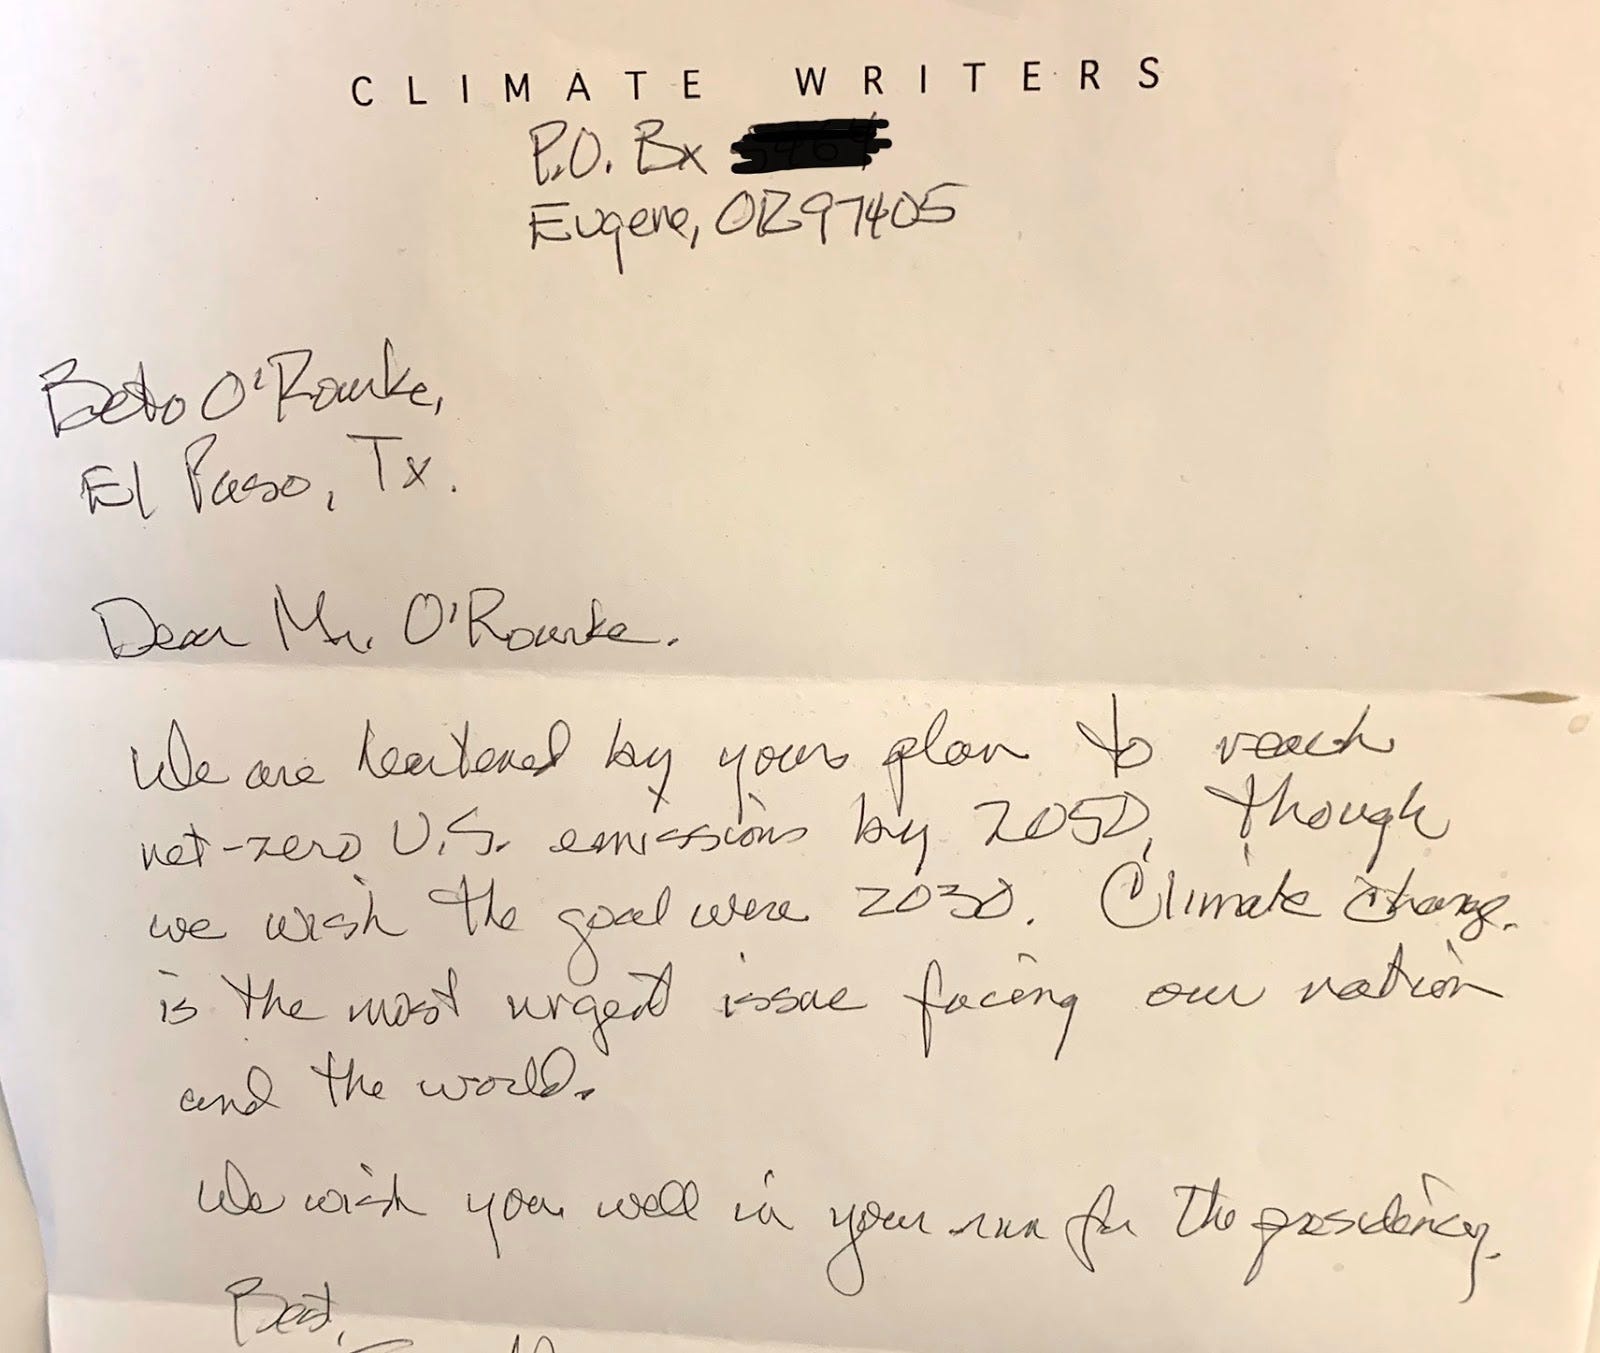 CLIMATE WRITERS
P.O. Bx
Eugene, OR 97405
Beto O'Rourke,
El Paso, Tx.
Dear Mr. O'Rourke.
We are heartened by your plan to reach
net-zero U.S. emissions by 2050, though
we wish the goal were 2030. Climate change
is the most urgent issue facing our nation
and the world.
We wish you well in your run for the presidency.
Best,